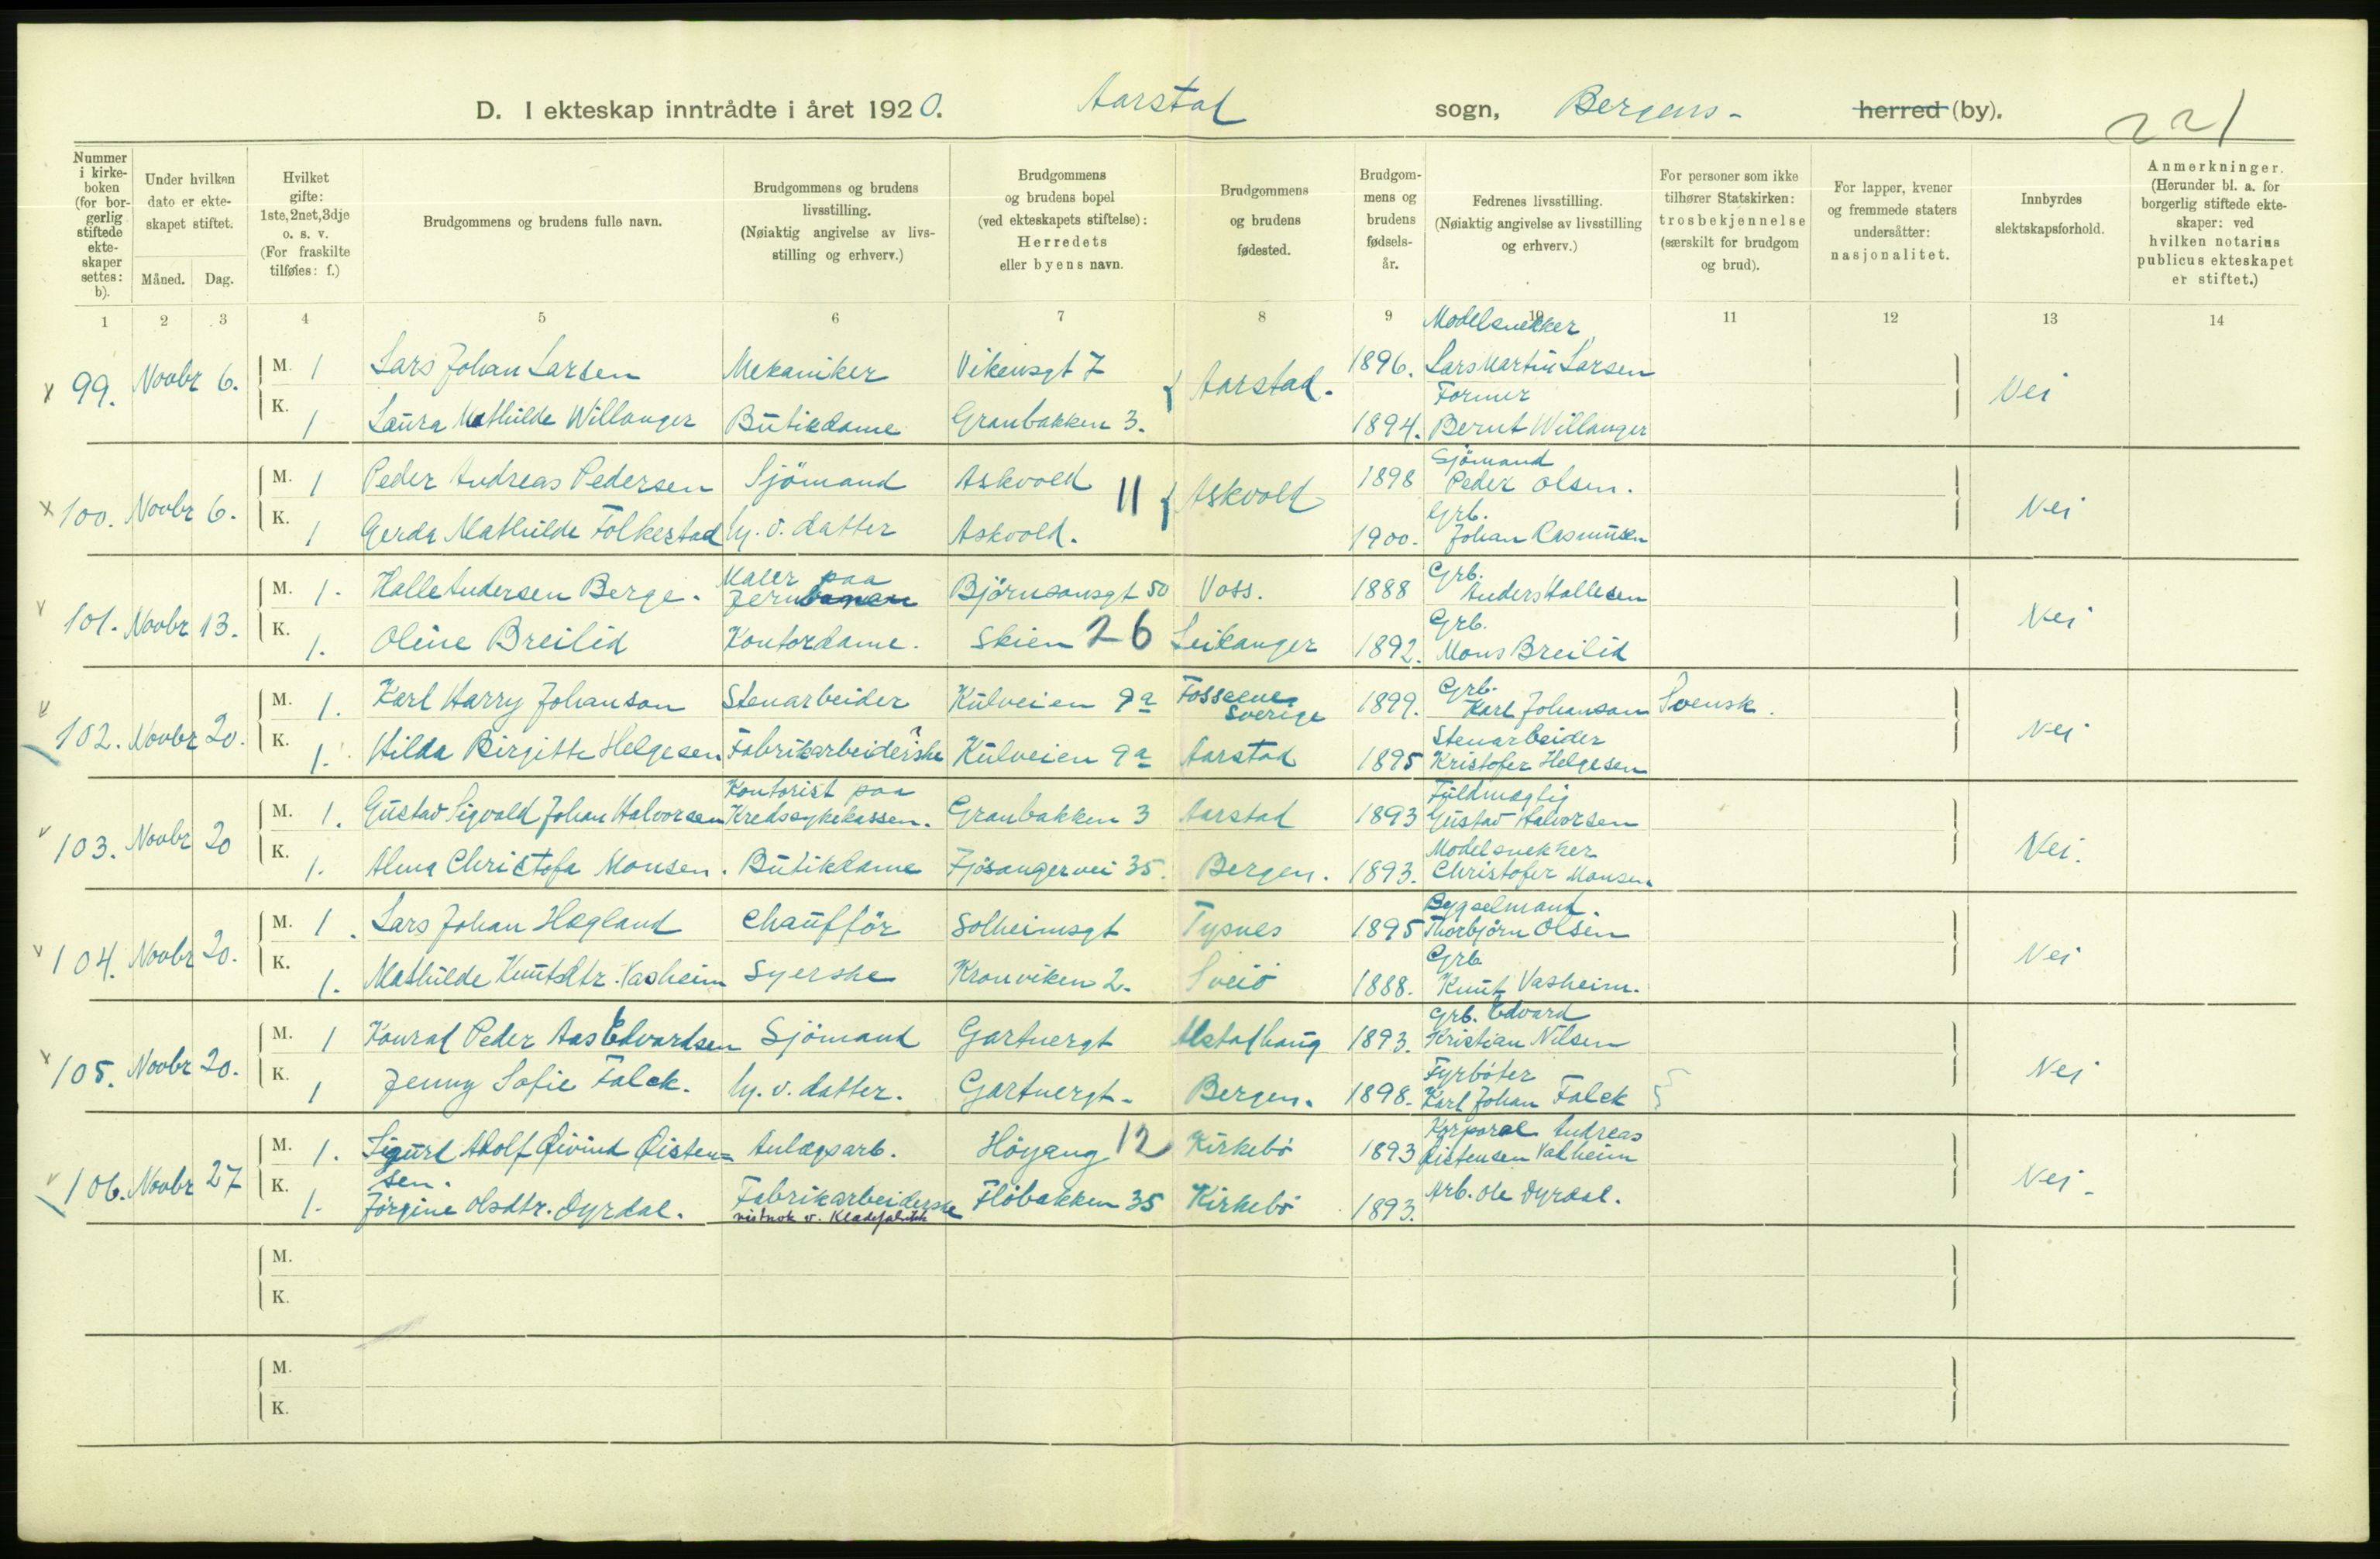 D. I ekteskap inntrådte i året 1920. Aarstad sogn, Bergens - herred (by).
221
Nummer i kirke-boken (for bor-gerlig stiftede ekte-skaper settes: b).
Under hvilken dato er ekte-skapet stiftet.
Måned. Dag.
Hvilket gifte: 1ste, 2net, 3dje o. s. v. (For fraskilte tilføies: f.)
Brudgommens og brudens fulle navn.
Brudgommens og brudens livsstilling. (Nøiaktig angivelse av livs-stilling og erhverv.)
Brudgommens og brudens bopel (ved ekteskapets stiftelse): Herredets eller byens navn.
Brudgommens og brudens fødested.
Brudgom-mens og brudens fødsels-år.
Fedrenes livsstilling. (Nøiaktig angivelse av livsstilling og erhverv.)
For personer som ikke tilhører Statskirken: trosbekjennelse (særskilt for brudgom og brud).
For lapper, kvener og fremmede staters undersåtter: nasjonalitet.
Innbyrdes slektskapsforhold.
Anmerkninger. (Herunder bl. a. for borgerlig stiftede ekte-skaper: ved hvilken notarius publicus ekteskapet er stiftet.)
1 2 3 4 5 6 7 8 9 10 11 12 13 14
Modelsnekker
x 99. Novbr 6. M. 1 Lars Johan Larsen Mekaniker Vikensgt 7 Aarstad. 1896. Lars Martin Larsen Nei
Former
K. 1 Laura Mathilde Willanger Butikdame Granbakken 3. 1894. Bernt Willanger
Sjömand
x 100. Novbr 6. M. 1 Peder Andreas Pedersen Sjömand Askvold 11 Askvold 1898 Peder Olsen. Nei
Grb.
K. 1 Gerda Mathilde Folkestad hj. v. datter Askvold. 1900. Johan Rasmusen
Maler paa Grb.
v 101. Novbr 13. M. 1. Halle Andersen Berge. Jernbanen Björnsonsgt 50 Voss. 1888 Anders Hallesen Nei
Grb.
K. 1. Oline Breilid Kontordame. Skien 26 Leikanger 1892. Mons Breilid
Grb.
v 102. Novbr 20. M. 1. Karl Harry Johanson Stenarbeider Kulveien 9a Sverige 1899. Karl Johanson Svensk. Nei
Stenarbeider
K. 1. Hilda Birgitte Helgesen Fabrikarbeiderske Kulveien 9a Aarstad 1895 Kristofer Helgesen
Kontorist paa Fuldmægtig
v 103. Novbr 20 M. 1. Gustav Sigvald Johan Halvorsen Kredssykekassen. Granbakken 3 Aarstad 1893 Gustav Halvorsen Nei.
Modelsnekker
K. 1. Alma Christofa Monsen. Butikdame Fjösangervei 35. Bergen. 1893. Christofer Monsen
Bygselmand.
v 104. Novbr 20. M. 1. Lars Johan Hægland Chaufför Solheimsgt Tysnes 1895 Thorbjörn Olsen Nei
Grb.
K. 1. Mathilde Knutsdtr. Vasheim Syerske Kronviken 2. Sveio 1888. Knut Vasheim.
Grb. Edvard
x 105. Novbr 20. M. 1 Konrad Peder Aas Edvardsen Sjömand Gartnergt Alstadhaug 1893. Kristian Nilsen Nei
Fyrböter
K. 1 Jenny Sofie Falck. hj. v. datter. Gartnergt. Bergen. 1898. Karl Johan Falck
Korporal Andreas
v 106. Novbr 27 M. 1. Sigurd Adolf Öivind Öisten= Anlægsarb. Höyang 12 Kirkebö 1893 Öistensen Vadheim Nei -
sen.
K. 1. Jörgine Olsdtr. Dyrdal. Fabrikarbeiderske Flöbakken 35 Kirkebö 1893. Arb. Ole Dyrdal.
vistnok v. Klædefabrik
M.
K.
M.
K.